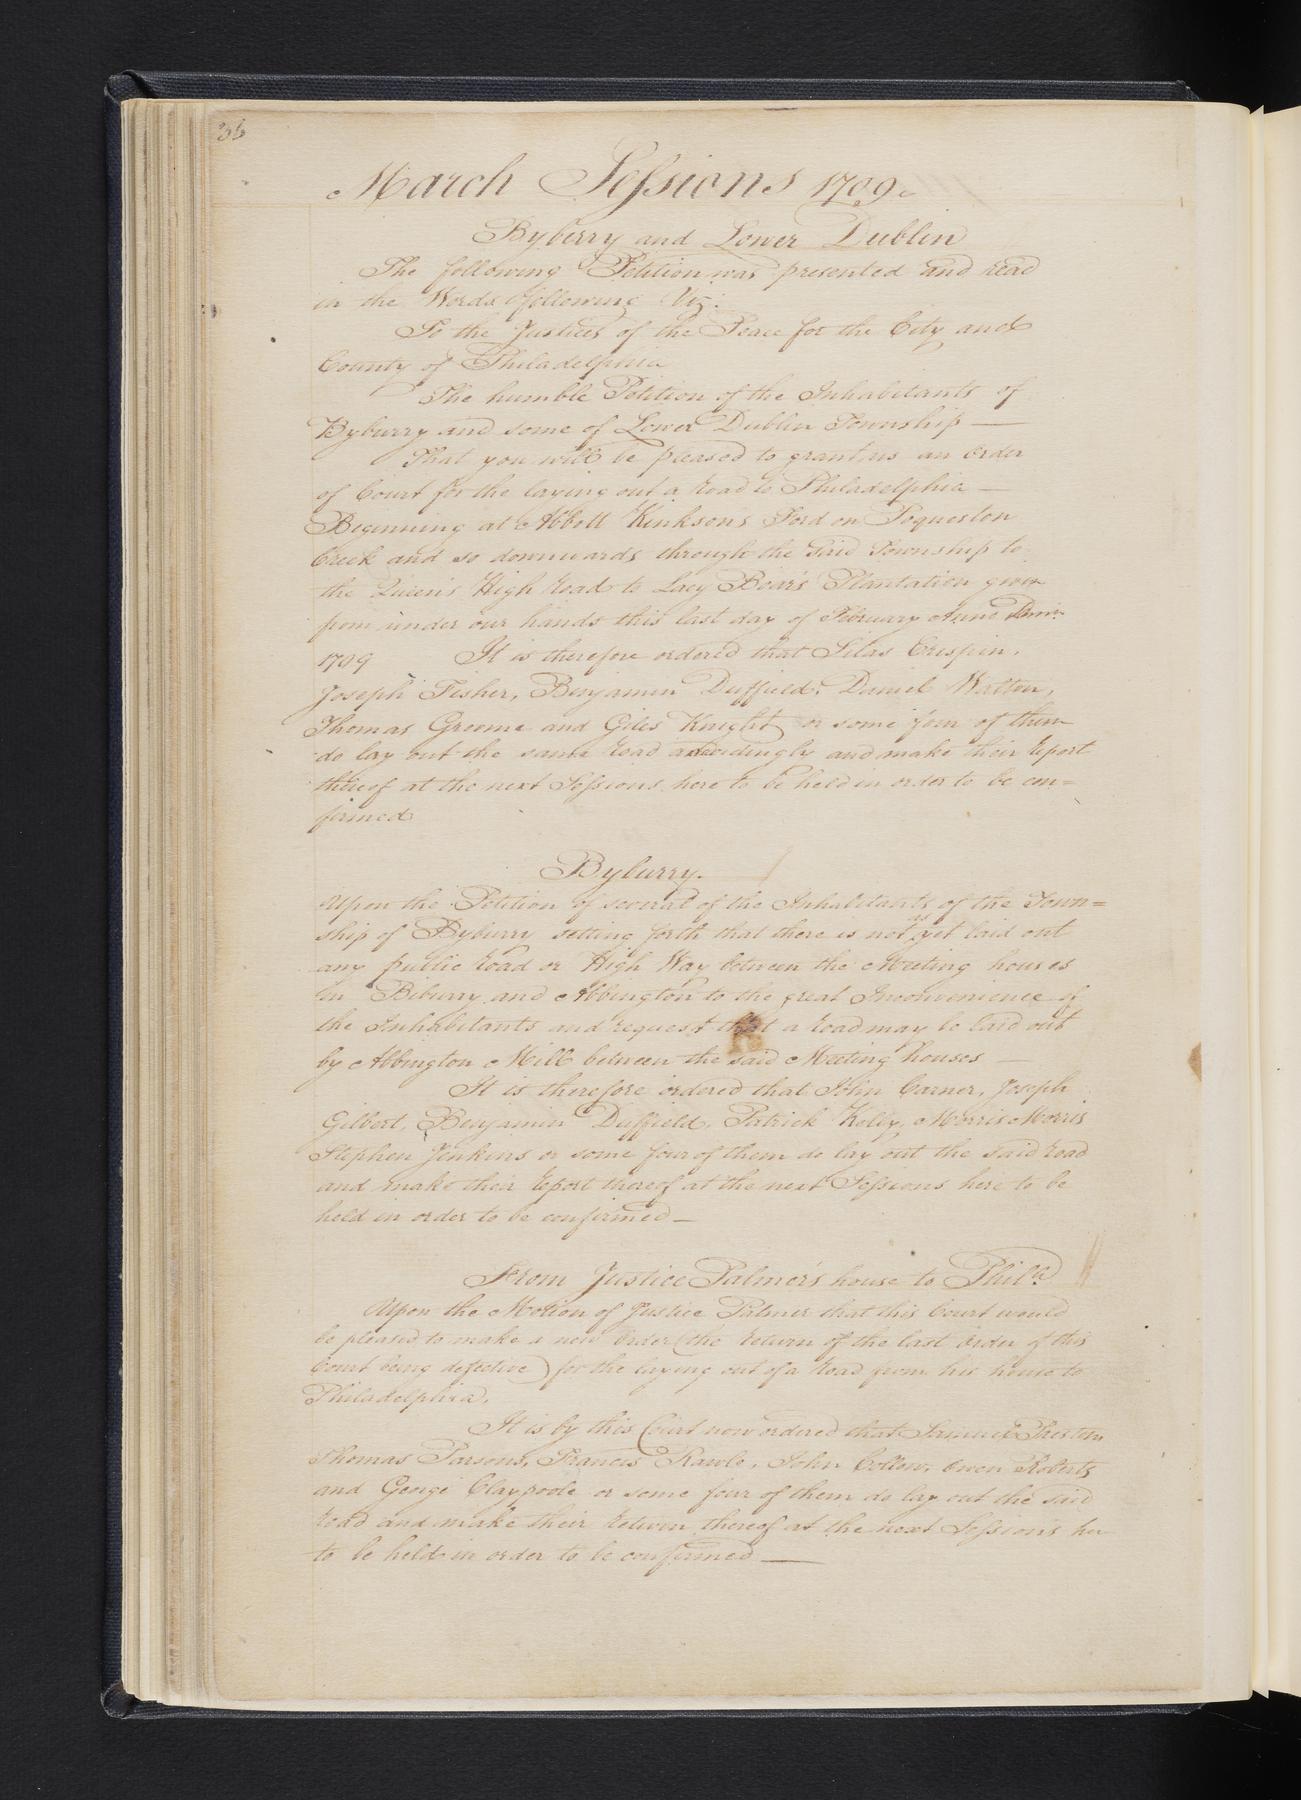 36
March Sessions 1709.
Byberry and Lower Dublin
The following Petition was presented and read
in the Words following Viz:
To the Justices of the Peace for the City and
County of Philadelphia
The humble Petition of the Inhabitants of
Byburry and some of Lower Dublin Township —
That you will be pleased to grant us an Order
of Court for the laying out a Road to Philadelphia —
Beginning at Abbott Hinksons Ford on Poqueston
Creek and so downwards through the said Township to
the Queen's High Road to Lacy Boar's Plantation given
from under our hands this last day of February Anno Dom:
1709 It is therefore ordered that Silas Crispin,
Joseph Fisher, Benjamin Duffield, Daniel Walton,
Thomas Groome and Giles Knight or some four of them
do lay out the same Road accordingly and make their Report
thereof at the next Sessions here to be held in order to be con=
firmed
Byburry.
Upon the Petition of several of the Inhabitants of the Town=
ship of Byburry setting forth that there is not as yet laid out
any public Road or High Way between the Meeting houses
in Biburry and Abbington to the great Inconvenience of
the Inhabitants and request that a Road may be laid out
by Abbington Mill between the said Meeting houses —
It is therefore ordered that John Carner, Joseph
Gilbert, Benjamin Duffield, Patrick Kelly, Morris Morris
Stephen Jenkins or some four of them do lay out the said Road
and make their Report thereof at the next Sessions here to be
held in order to be confirmed —
From Justice Palmer's house to Phil.a
Upon the Motion of Justice Palmer that this Court would
be pleased to make a new Order (the Return of the last Order of this
Court being defective) for the laying out of a Road from his house to
Philadelphia.
It is by this Court now ordered that Samuel Preston
Thomas Parsons, Francis Rawle, John Collow, Owen Roberts
and George Claypoole or some four of them do lay out the said
Road and make their Return thereof at the next Sessions her
to be held in order to be confirmed —